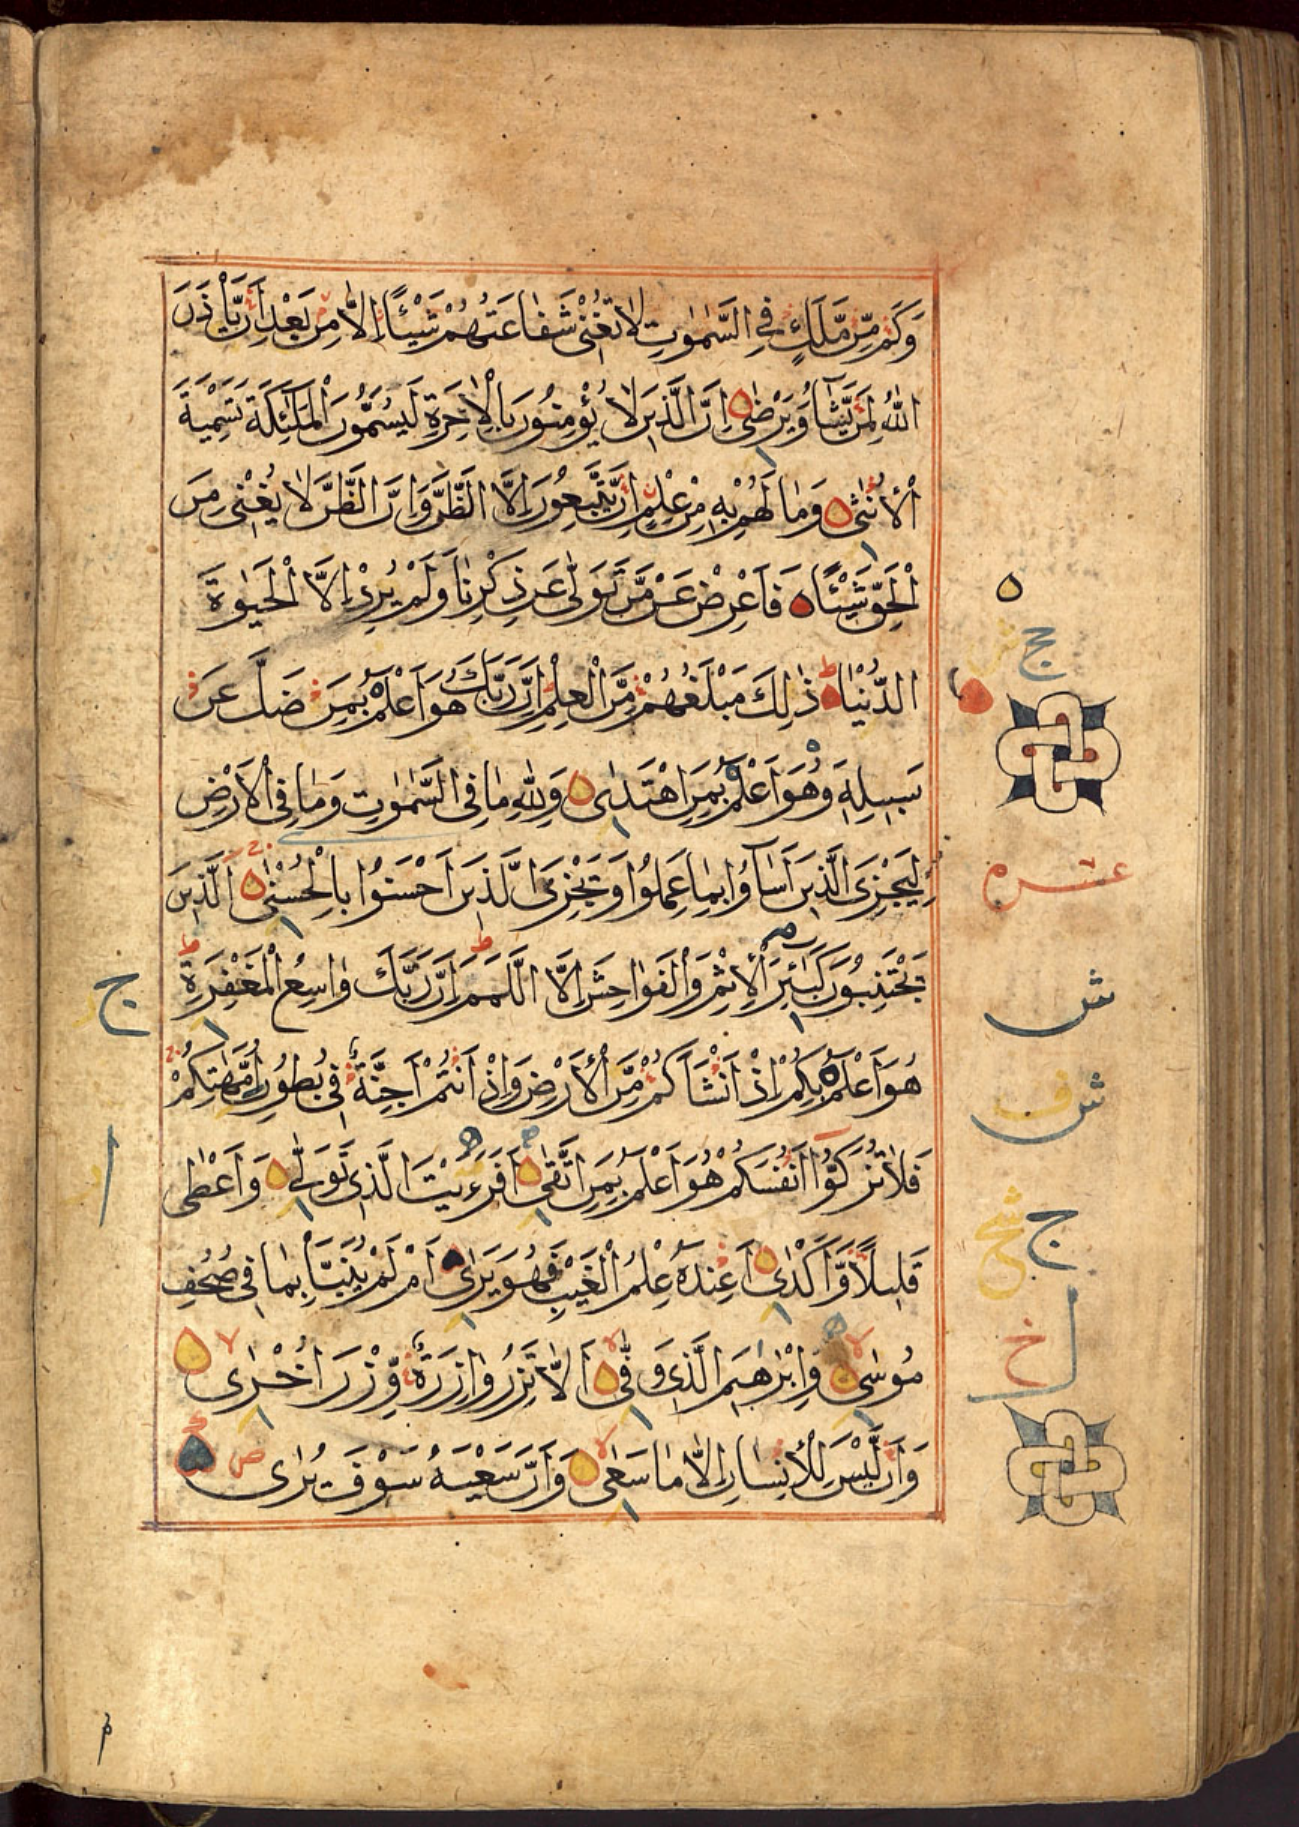 وَكَمْ مِّنْ مَّلَكٍ فِي السَّمٰوٰتِ لَا تُغْنِيْ شَفَاعَتُهُمْ شَيْئًا اِلَّا مِنْ بَعْدِ اَنْ يَّأْذَنَ
اللّٰهُ لِمَنْ يَّشَآءُ وَيَرْضٰى ۝ اِنَّ الَّذِيْنَ لَا يُؤْمِنُوْنَ بِالْاٰخِرَةِ لَيُسَمُّوْنَ الْمَلٰٓئِكَةَ تَسْمِيَةَ
الْاُنْثٰى ۝ وَمَا لَهُمْ بِهٖ مِنْ عِلْمٍ اِنْ يَّتَّبِعُوْنَ اِلَّا الظَّنَّ وَاِنَّ الظَّنَّ لَا يُغْنِيْ مِنَ
الْحَقِّ شَيْئًا ۝ فَاَعْرِضْ عَنْ مَّنْ تَوَلّٰى عَنْ ذِكْرِنَا وَلَمْ يُرِدْ اِلَّا الْحَيٰوةَ
الدُّنْيَا ۝ ذٰلِكَ مَبْلَغُهُمْ مِّنَ الْعِلْمِ اِنَّ رَبَّكَ هُوَ اَعْلَمُ بِمَنْ ضَلَّ عَنْ
سَبِيْلِهٖ وَهُوَ اَعْلَمُ بِمَنِ اهْتَدٰى ۝ وَلِلّٰهِ مَا فِي السَّمٰوٰتِ وَمَا فِي الْاَرْضِ
لِيَجْزِيَ الَّذِيْنَ اَسَآؤُا بِمَا عَمِلُوْا وَيَجْزِيَ الَّذِيْنَ اَحْسَنُوْا بِالْحُسْنٰى ۝ اَلَّذِيْنَ
يَجْتَنِبُوْنَ كَبٰٓئِرَ الْاِثْمِ وَالْفَوَاحِشَ اِلَّا اللَّمَمَ اِنَّ رَبَّكَ وَاسِعُ الْمَغْفِرَةِ
هُوَ اَعْلَمُ بِكُمْ اِذْ اَنْشَاَكُمْ مِّنَ الْاَرْضِ وَاِذْ اَنْتُمْ اَجِنَّةٌ فِيْ بُطُوْنِ اُمَّهٰتِكُمْ
فَلَا تُزَكُّوْا اَنْفُسَكُمْ هُوَ اَعْلَمُ بِمَنِ اتَّقٰى ۝ اَفَرَءَيْتَ الَّذِيْ تَوَلّٰى ۝ وَاَعْطٰى
قَلِيْلًا وَّاَكْدٰى ۝ اَعِنْدَهٗ عِلْمُ الْغَيْبِ فَهُوَ يَرٰى ۝ اَمْ لَمْ يُنَبَّأْ بِمَا فِيْ صُحُفِ
مُوْسٰى ۝ وَاِبْرٰهِيْمَ الَّذِيْ وَفّٰى ۝ اَلَّا تَزِرُ وَازِرَةٌ وِّزْرَ اُخْرٰى ۝
وَاَنْ لَّيْسَ لِلْاِنْسَانِ اِلَّا مَا سَعٰى ۝ وَاَنَّ سَعْيَهٗ سَوْفَ يُرٰى
عشره
ش
ج
ج
خ